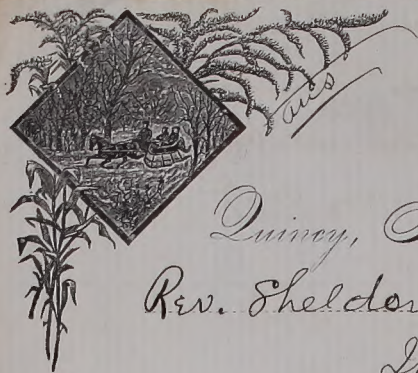 ans
Quincy,
Rev. Sheldon